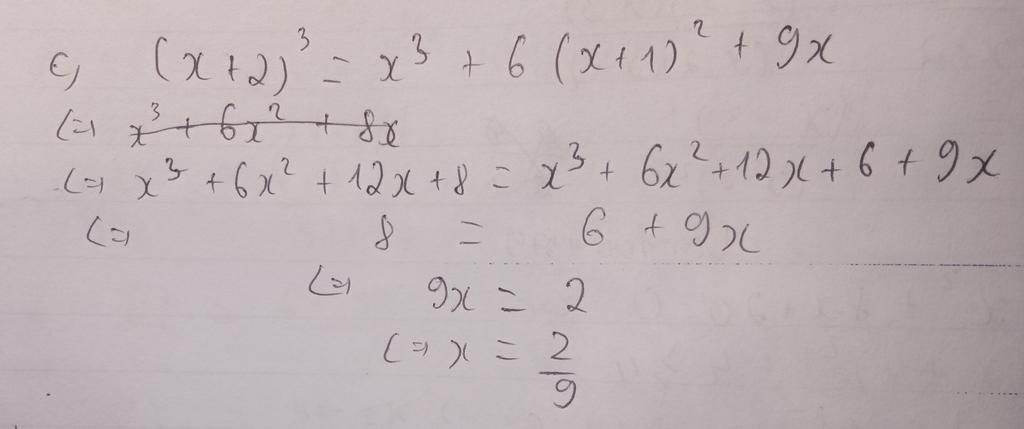 c) (x+2)³ = x³ + 6(x+1)² + 9x
(=) x³ + 6x² + 8x
(=) x³ + 6x² + 12x + 8 = x³ + 6x² + 12x + 6 + 9x
(=) 8 = 6 + 9x
(=) 9x = 2
(=) x = 2/9